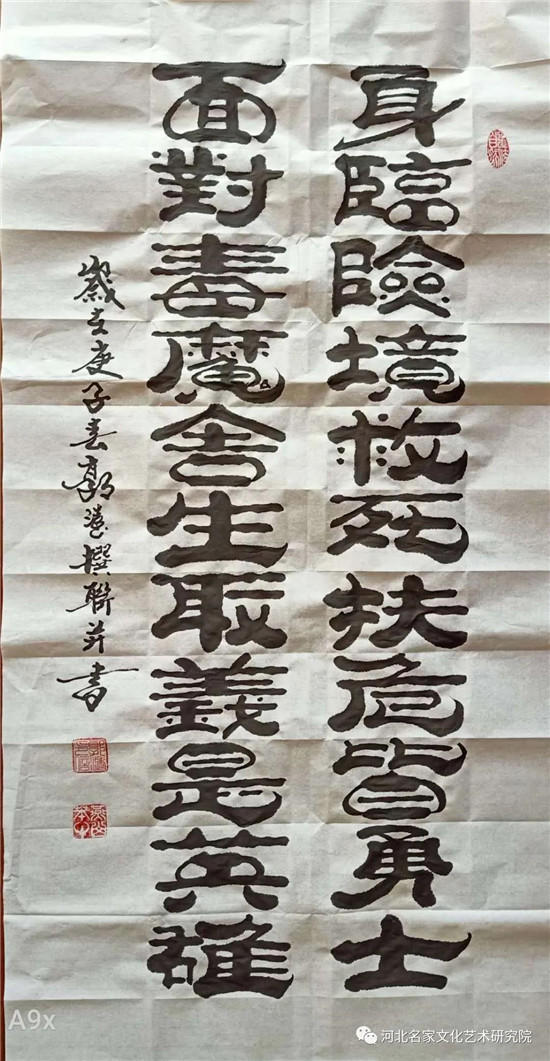 身臨險境救死扶危皆勇士
面對毒魔舍生取義是英雄
歲在庚子春郭撰聯并書
A9x
河北名家文化艺术研究院